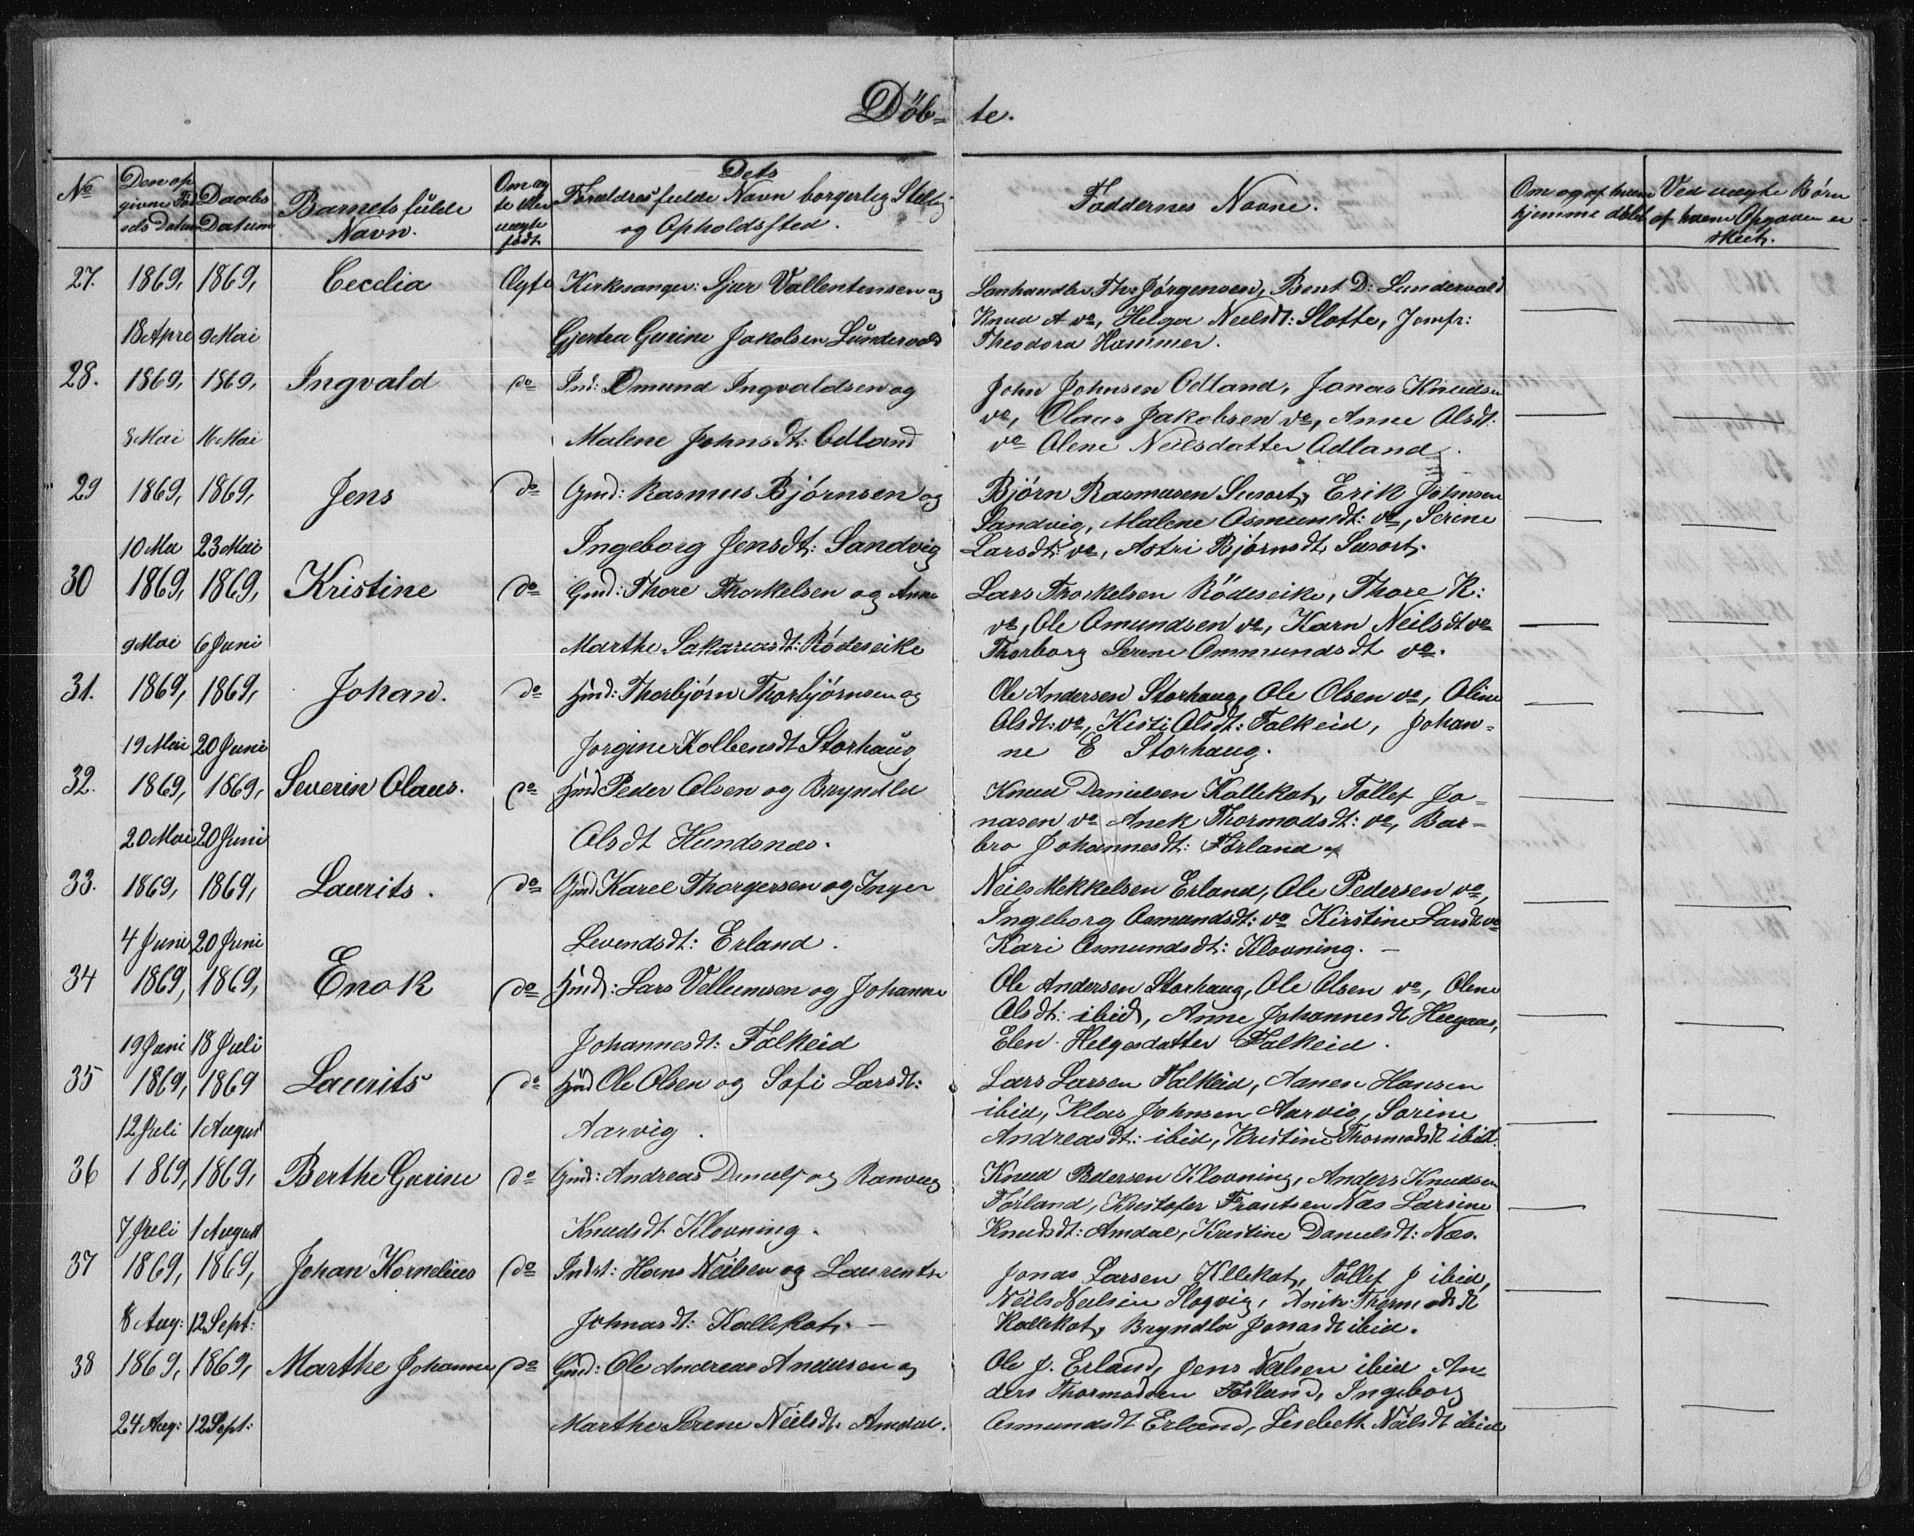 Döb- te.
No
Den op
givne Fød
sels Datum
Daabs
Datum
Barnets fulde
Navn.
Om æg
te eller
uægte
født
Dets
Forældres fulde Navn borgerlig Stilling
og Opholdssted.
Faddernes Navne.
Om og af hvem
hjemme døbt
Ved uægte Børn
af hvem Opgaven er
skeet.
27. 1869, 1869, Cecelia Ægte Kirkesanger: Sjur Vallentinsen og
18 Apre 9 Mai Gjertra Gurine Jakobsen Lundervold
Lanhandler Th: Jørgensen, Bent D: Lundervold
Knud A vo, Helger Neilsdt: Slotte, Jomfr:
Theodora Hammer.
28. 1869, 1869, Ingvald do Ind: Omund Ingvaldsen og
8 Mai 16 Mai Malene Johnsdt: Odland
John Johnsen Odland, Jonas Knudsen
vo, Olaus Jakobsen vo, Anne Olsdt.
vo Olene Neilsdatter Odland.
29 1869, 1869, Jens do Gmd: Rasmus Bjørnsen og
10 Ma 23 Mai Ingeborg Jensdt: Sandvig
Bjørn Rasmusen Susort, Erik Johnsen
Sandvig, Malene Osmundt: vo, Serine
Larsdt: vo, Astri Bjørnsdt. Susort.
30 1869, 1869, Kristine do Gmd: Thore Thorkelsen og Anne
9 Mai 6 Juni Marthe Sakariasdt: Rødeseike
Lars Thorkelsen Rödeseike, Thore K:
vo, Ole Omundsen vo, Karn Neilsdt vo
Thorborg Serene Ommundsdt vo.
31. 1869, 1869, Johan. do Hmd: Thorbjørn Thorbjørnsen og
19 Mai 20 Juni Jorgine Kolbensdt Storhaug
Ole Andersen Storhaug, Ole Olsen vo, Oline
Olsdt: vo, Kisti Olsdt: Falkeid, Johan-
ne E Storhaug.
32. 1869, 1869, Severin Olaus. do Hmd Peder Olsen og Bryndla
20 Mai 20 Juni Olsdt Hundsnæs.
Knud Danielsen Kallekot, Tollef Jo-
nasen vo Anek Thormodsdt: vo, Bar-
bro Johannesdt: Førland
33. 1869, 1869, Laurits. do Gmd Karel Thorgersen og Inger
4 Juni 20 Juni Levendsdt: Erland.
Neils Mekkelsen Erland, Ole Pedersen vo,
Ingeborg Osmundsdt: vo Kirstine Larsdt vo
Kari Osmundsdt: Klovning. -
34 1869, 1869, Enok do Hmd: Lars Vellumsen og Johanne
19 Juni 18 Juli Johannesdt: Falkeid
Ole Andersen Storhaug, Ole Olsen vo, Olene
Olsdt: ibid, Anne Johannesdt
Elen Helgesdatter Falkeid.
35 1869, 1869 Laurits do Hmd Ole Olsen og Sofi Larsdt:
12 Juli 1 August Aarvig.
Lars Larsen Falkeid, Aanen Hansen
ibid, Klas Johnsen Aarvig, Sorine
Andreasdt: ibid, Kristine Thormodsdt ibid.
36 1869, 1869, Berthe Gurine do Gmd: Andreas Daniels og Ranveig
7 Juli 1 August Knudsdt Klovning.
Knud Pedersen Klovning, Anders Knudsen
Førland, Kristofer Frantsen Næs Larsine
Knutsdt: Amdal, Kristine Danielsdt: Næs.
37 1869, 1869, Johan Kornelius do Indst: Hans Neilsen og Laurentse
8 Aug: 12 Sept: Johnasdt: Kallekot. -
Jonas Larsen Kllekot, Tollef J ibid,
Neils Neelsen Slogvig, Anik Thormodsdt
Kallekot, Bryndla Jonasdt ibid.
38 1869, 1869, Marthe Johanne do Gmd: Ole Andreas Andersen og
24 Aug: 12 Sept: Marthe Serene Neilsdt: Amdal.
Ole J. Erland, Jens Nelsen ibid An-
ders Thormodsen Førland, Ingeborg
Osmundsdt Erland, Lisebeth Neilsdt ibid